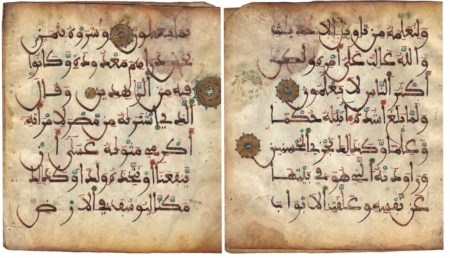 بما يعملون وشروه بثمن
بخس دراهم معدودة وكانوا
فيه من الزهدين وقال
الذي اشتريه من مصر لامرأته
أكرمي مثويه عسى أن
ينفعنا أو نتخذه ولدا وكذلك
مكنا ليوسف في الارض
ولنعلمه من تاويل الاحاديث
والله غالب على أمره ولكن
أكثر الناس لا يعلمون
ولما بلغ أشده آتينه حكما
وعلما وكذلك نجزي المحسنين
وراودته التي هو في بيتها
عن نفسه وغلقت الابواب